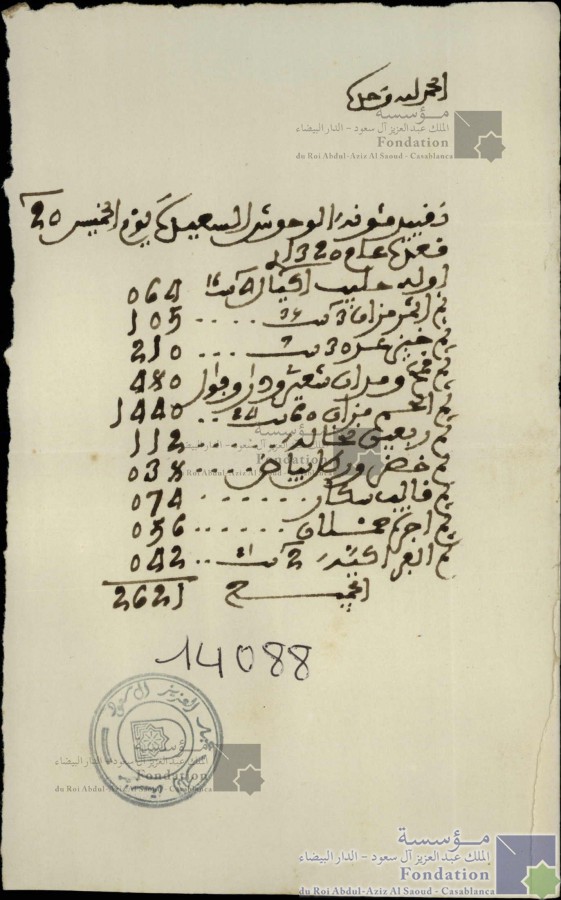 الحمد لله وحده
مؤسسة
الملك عبد العزيز آل سعود - الدار البيضاء
Fondation
du Roi Abdul-Aziz Al Saoud - Casablanca
تقييد مئونة الوحوش السعيدة يوم الخميس 20
قعدة عام 1320
اوله حليب 064
ثم التمر ميزان 3 .... 105
ثم خبز عدد 30 ... 210
ثم قمح ومدان شعير وفول 480
ثم اللحم ميزان 60 1440
ثم ربعين نخالة 112
ثم خضر وركل بياض .. 038
ثم قالب سكار ....... 074
ثم اجرة حملان ...... 056
ثم 2 .. 042
الجميع 2621
14088
مؤسسة
الملك عبد العزيز آل سعود - الدار البيضاء
Fondation
du Roi Abdul-Aziz Al Saoud - Casablanca
مؤسسة
الملك عبد العزيز آل سعود - الدار البيضاء
Fondation
du Roi Abdul-Aziz Al Saoud - Casablanca
مؤسسة
الملك عبد العزيز آل سعود - الدار البيضاء
Fondation
du Roi Abdul-Aziz Al Saoud - Casablanca